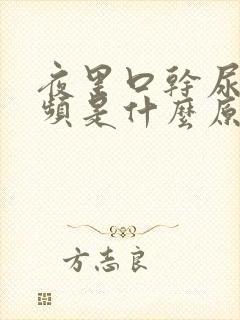 夜里口幹尿
頻是什麼原
方志良